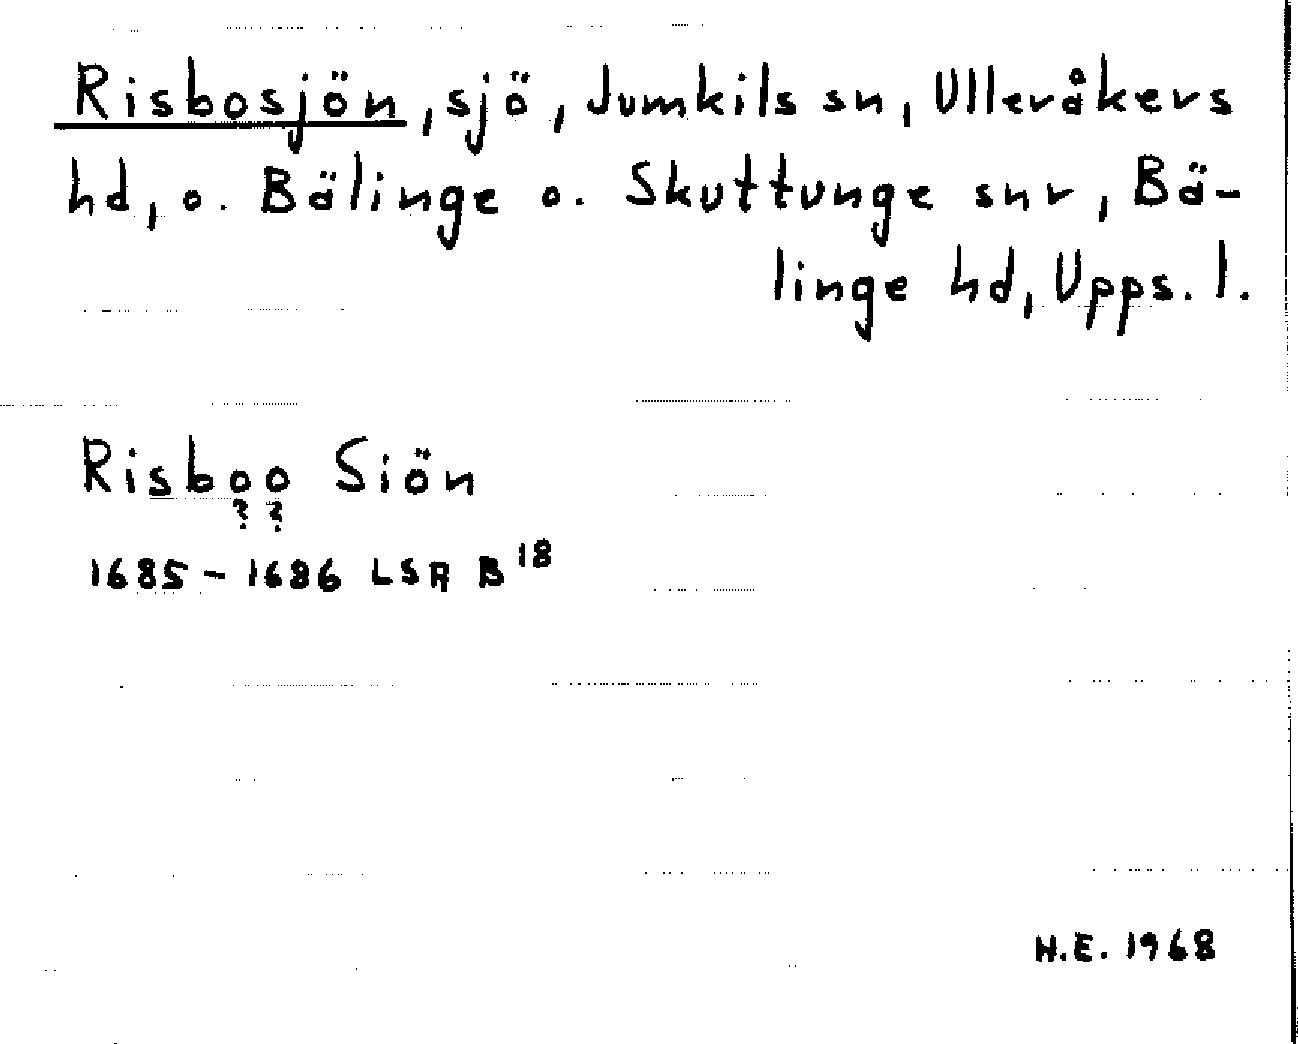 Risbosjön, sjö, Jumkils sn, Ulleråkers
hd, o. Bälinge o. Skuttunge snr, Bä-
linge hd, Upps. l.
Risboo Siön
? ?
1685-1686 LSA B 18
H.E. 1968